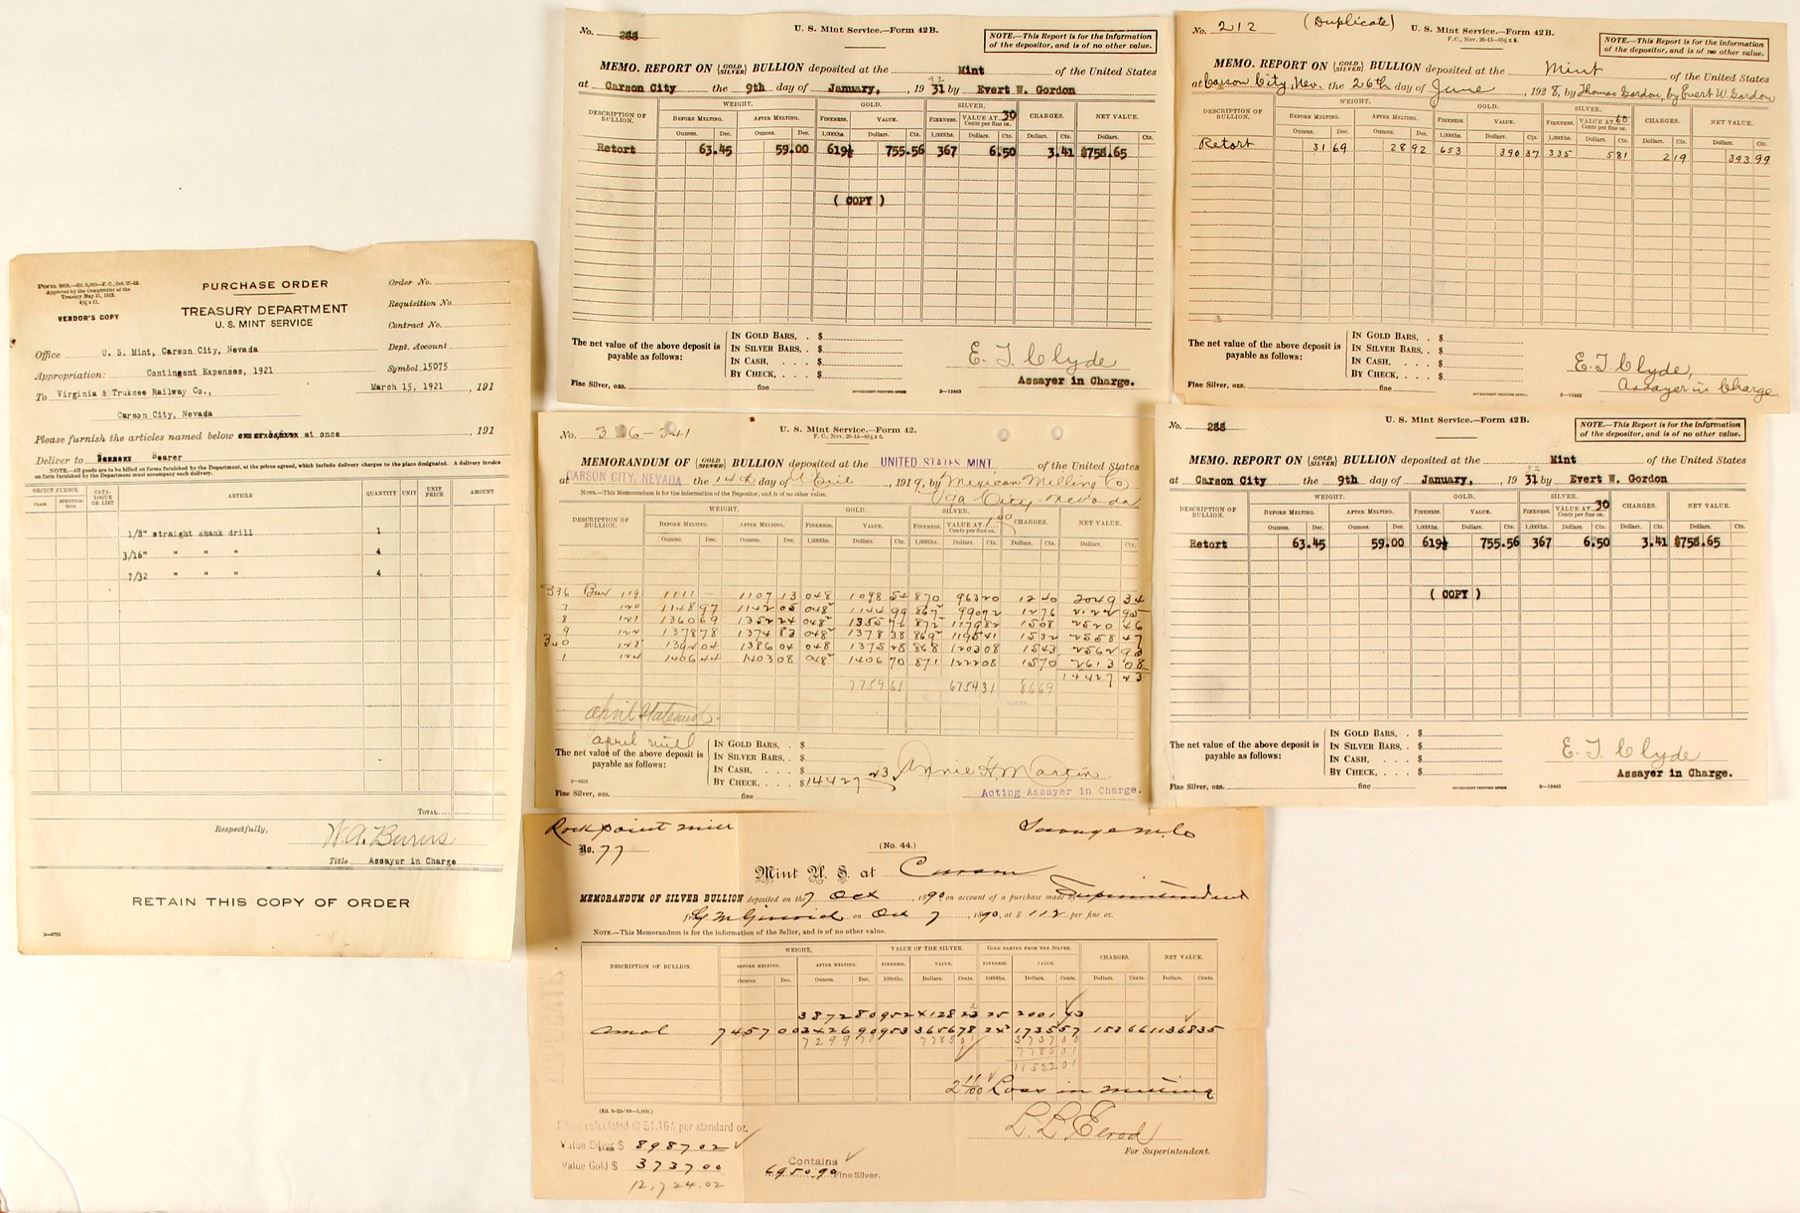 Form 
VENDOR'S COPY
PURCHASE ORDER
TREASURY DEPARTMENT
U. S. MINT SERVICE
Order No.
Requisition No.
Contract No.
Dept. Account
Symbol 15075
Office U. S. Mint, Carson City, Nevada
Appropriation: Contingent Expenses, 1921
To Virginia & Truckee Railway Co., March 15, 1921 , 191
Carson City, Nevada
Please furnish the articles named below at once , 191
Deliver to Bearer
NOTE.—All goods are to be billed on forms furnished by the Department, at the prices agreed, which include delivery charges to the place designated. A delivery invoice
on form furnished by the Department must accompany each delivery.
OBJECT SYMBOL CATALOGUE OR LIST ARTICLE QUANTITY UNIT UNIT PRICE AMOUNT
1/8" straight shank drill 1
3/16" " " " 4
7/32 " " " 4
TOTAL
Respectfully,
W. A. Burns
Title Assayer in Charge
RETAIN THIS COPY OF ORDER
No. 288
U. S. Mint Service.—Form 42B.
NOTE.—This Report is for the information
of the depositor, and is of no other value.
MEMO. REPORT ON {GOLD SILVER} BULLION deposited at the Mint of the United States
at Carson City the 9th day of January, , 19 31 32 by Evert W. Gordon
DESCRIPTION OF BULLION. WEIGHT. GOLD. SILVER. CHARGES. NET VALUE.
BEFORE MELTING. AFTER MELTING. FINENESS. VALUE. FINENESS. VALUE AT 30 Cents per fine oz.
Ounces. Dec. Ounces. Dec. 1,000ths. Dollars. Cts. 1,000ths. Dollars. Cts. Dollars. Cts. Dollars. Cts.
Retort 63.45 59.00 619½ 755.56 367 6.50 3.41 $758.65
( COPY )
The net value of the above deposit is
payable as follows:
IN GOLD BARS, . $
IN SILVER BARS, . $
IN CASH, . . . . $
BY CHECK, . . . . $
E. T. Clyde
Assayer in Charge.
Fine Silver, ozs. fine
GOVERNMENT PRINTING OFFICE 2—12463
No. 212 (Duplicate)
U. S. Mint Service.—Form 42B.
F. C., Nov. 26-15—9½ x 8.
NOTE.—This Report is for the information
of the depositor, and is of no other value.
MEMO. REPORT ON {GOLD SILVER} BULLION deposited at the Mint of the United States
at Carson City, Nev. the 26th day of June , 1928, by Thomas Gordon, by Evert W. Gordon
DESCRIPTION OF BULLION. WEIGHT. GOLD. SILVER. CHARGES. NET VALUE.
BEFORE MELTING. AFTER MELTING. FINENESS. VALUE. FINENESS. VALUE AT 60 Cents per fine oz.
Ounces. Dec. Ounces. Dec. 1,000ths. Dollars. Cts. 1,000ths. Dollars. Cts. Dollars. Cts. Dollars. Cts.
Retort 31 69 28 92 653 390 37 335 5 81 2 19 393 99
The net value of the above deposit is
payable as follows:
IN GOLD BARS, . $
IN SILVER BARS, . $
IN CASH, . . . . $
BY CHECK, . . . . $
E. T. Clyde,
Assayer in Charge
Fine Silver, ozs. fine
GOVERNMENT PRINTING OFFICE 2—12463
No. 336-341
U. S. Mint Service.—Form 42.
F. C., Nov. 26-15—9½ x 8.
MEMORANDUM OF {GOLD SILVER} BULLION deposited at the UNITED STATES MINT, of the United States
at CARSON CITY, NEVADA the 14th day of April , 1919, by Mexican Milling Co
Va City, Nevada
NOTE.—This Memorandum is for the information of the Depositor, and is of no other value.
DESCRIPTION OF BULLION. WEIGHT. GOLD. SILVER. CHARGES. NET VALUE.
BEFORE MELTING. AFTER MELTING. FINENESS. VALUE. FINENESS. VALUE AT 1.00 Cents per fine oz.
Ounces. Dec. Ounces. Dec. 1,000ths. Dollars. Cts. 1,000ths. Dollars. Cts. Dollars. Cts. Dollars. Cts.
336 Bar 119 1111 — 1107 13 048 1098 54 870 963 20 12 40 2049 34
7 120 1148 97 1142 05 048² 1144 99 867² 990 72 12 76 2122 95
8 121 1360 69 1352 24 048² 1355 72 872² 1179 82 15 08 2520 46
9 122 1378 78 1374 83 048² 1378 38 869² 1195 41 15 32 2558 47
340 123 1392 04 1386 04 048 1375 28 868 1203 08 15 43 2562 93
1 124 1406 44 1403 08 048² 1406 70 871 1222 08 15 70 2613 08
14427 23
7759 61 6754 31 86 69
April Statement.
April mill
The net value of the above deposit is
payable as follows:
IN GOLD BARS, . $
IN SILVER BARS, . $
IN CASH, . . . . $
BY CHECK, . . . . $14427 23
Annie H. Martin
Acting Assayer in Charge.
Fine Silver, ozs. fine
No. 288
U. S. Mint Service.—Form 42B.
NOTE.—This Report is for the information
of the depositor, and is of no other value.
MEMO. REPORT ON {GOLD SILVER} BULLION deposited at the Mint of the United States
at Carson City the 9th day of January, , 19 31 32 by Evert W. Gordon
DESCRIPTION OF BULLION. WEIGHT. GOLD. SILVER. CHARGES. NET VALUE.
BEFORE MELTING. AFTER MELTING. FINENESS. VALUE. FINENESS. VALUE AT 30 Cents per fine oz.
Ounces. Dec. Ounces. Dec. 1,000ths. Dollars. Cts. 1,000ths. Dollars. Cts. Dollars. Cts. Dollars. Cts.
Retort 63.45 59.00 619½ 755.56 367 6.50 3.41 $758.65
( COPY )
The net value of the above deposit is
payable as follows:
IN GOLD BARS, . $
IN SILVER BARS, . $
IN CASH, . . . . $
BY CHECK, . . . . $
E. T. Clyde
Assayer in Charge.
Fine Silver, ozs. fine
GOVERNMENT PRINTING OFFICE 2—12463
Rock point mill Savage M. Co
No. 77
(No. 44.)
Mint U. S. at Carson
MEMORANDUM OF SILVER BULLION deposited on the 7 Oct , 1890 on account of a purchase made by Superintendent
on Oct 7 , 1890, at $ 1 12 per fine oz.
NOTE.—This Memorandum is for the information of the Seller, and is of no other value.
DESCRIPTION OF BULLION. WEIGHT. VALUE OF THE SILVER. GOLD PARTED FROM THE SILVER. CHARGES. NET VALUE.
BEFORE MELTING. AFTER MELTING. FINENESS. VALUE. FINENESS. VALUE.
Ounces. Dec. Ounces. Dec. 1000ths. Dollars. Cents. 1000ths. Dollars. Cents. Dollars. Cents. Dollars. Cents.
3872 80 952 4128 23 25 2001 43
Amal 7457 00 3426 90 953 3656 78 24⁵ 1735 57 153 66 11368 35
7299 70 7785 01 3737 00
7785 01
11522 01
2 11/100 Loss in melting
L. L. Elrod
For Superintendent.
(Ed. 8-23-'89—5,000.)
DUPLICATE
Silver calculated @ $1.16¼ per standard oz.
Value Silver $ 8987 02
Value Gold $ 3737 00
12,724.02
Contains
6950.90 Fine Silver.